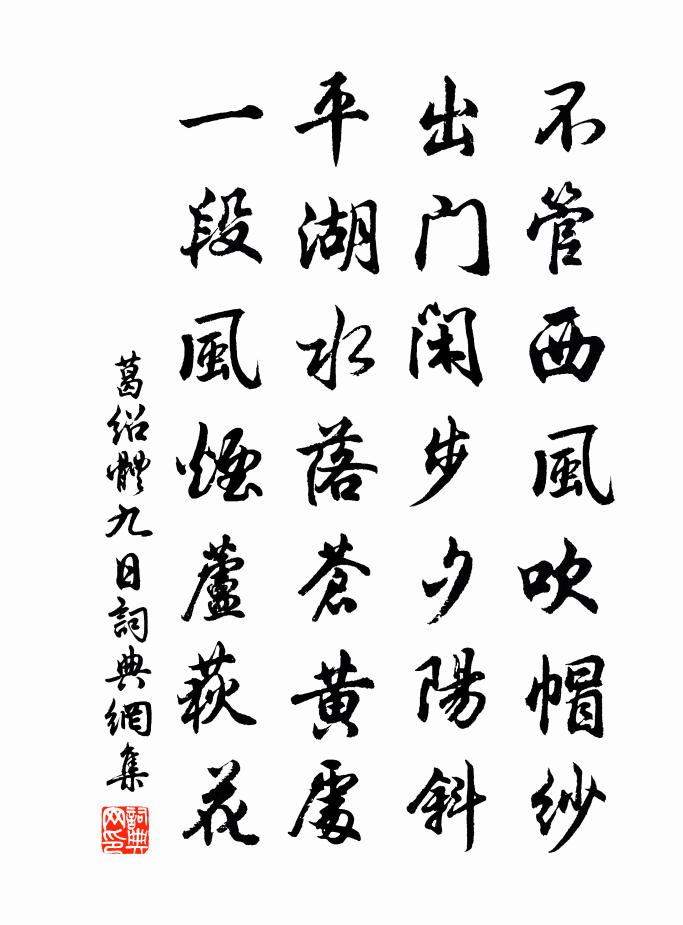 不管西風吹帽紗
出門閑步夕陽斜
平湖水落蒼黃處
一段風煙蘆荻花
葛紹體九日詞典網集
詞典網印